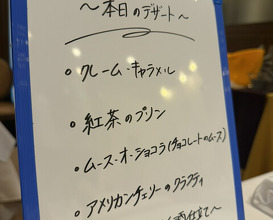 ～本日のデザート～
・クレーム・キャラメル
・紅茶のプリン
・ムース・オ・ショコラ(チョコレートのムース)
・アメリカンチェリーのクラフティ
仕立て～